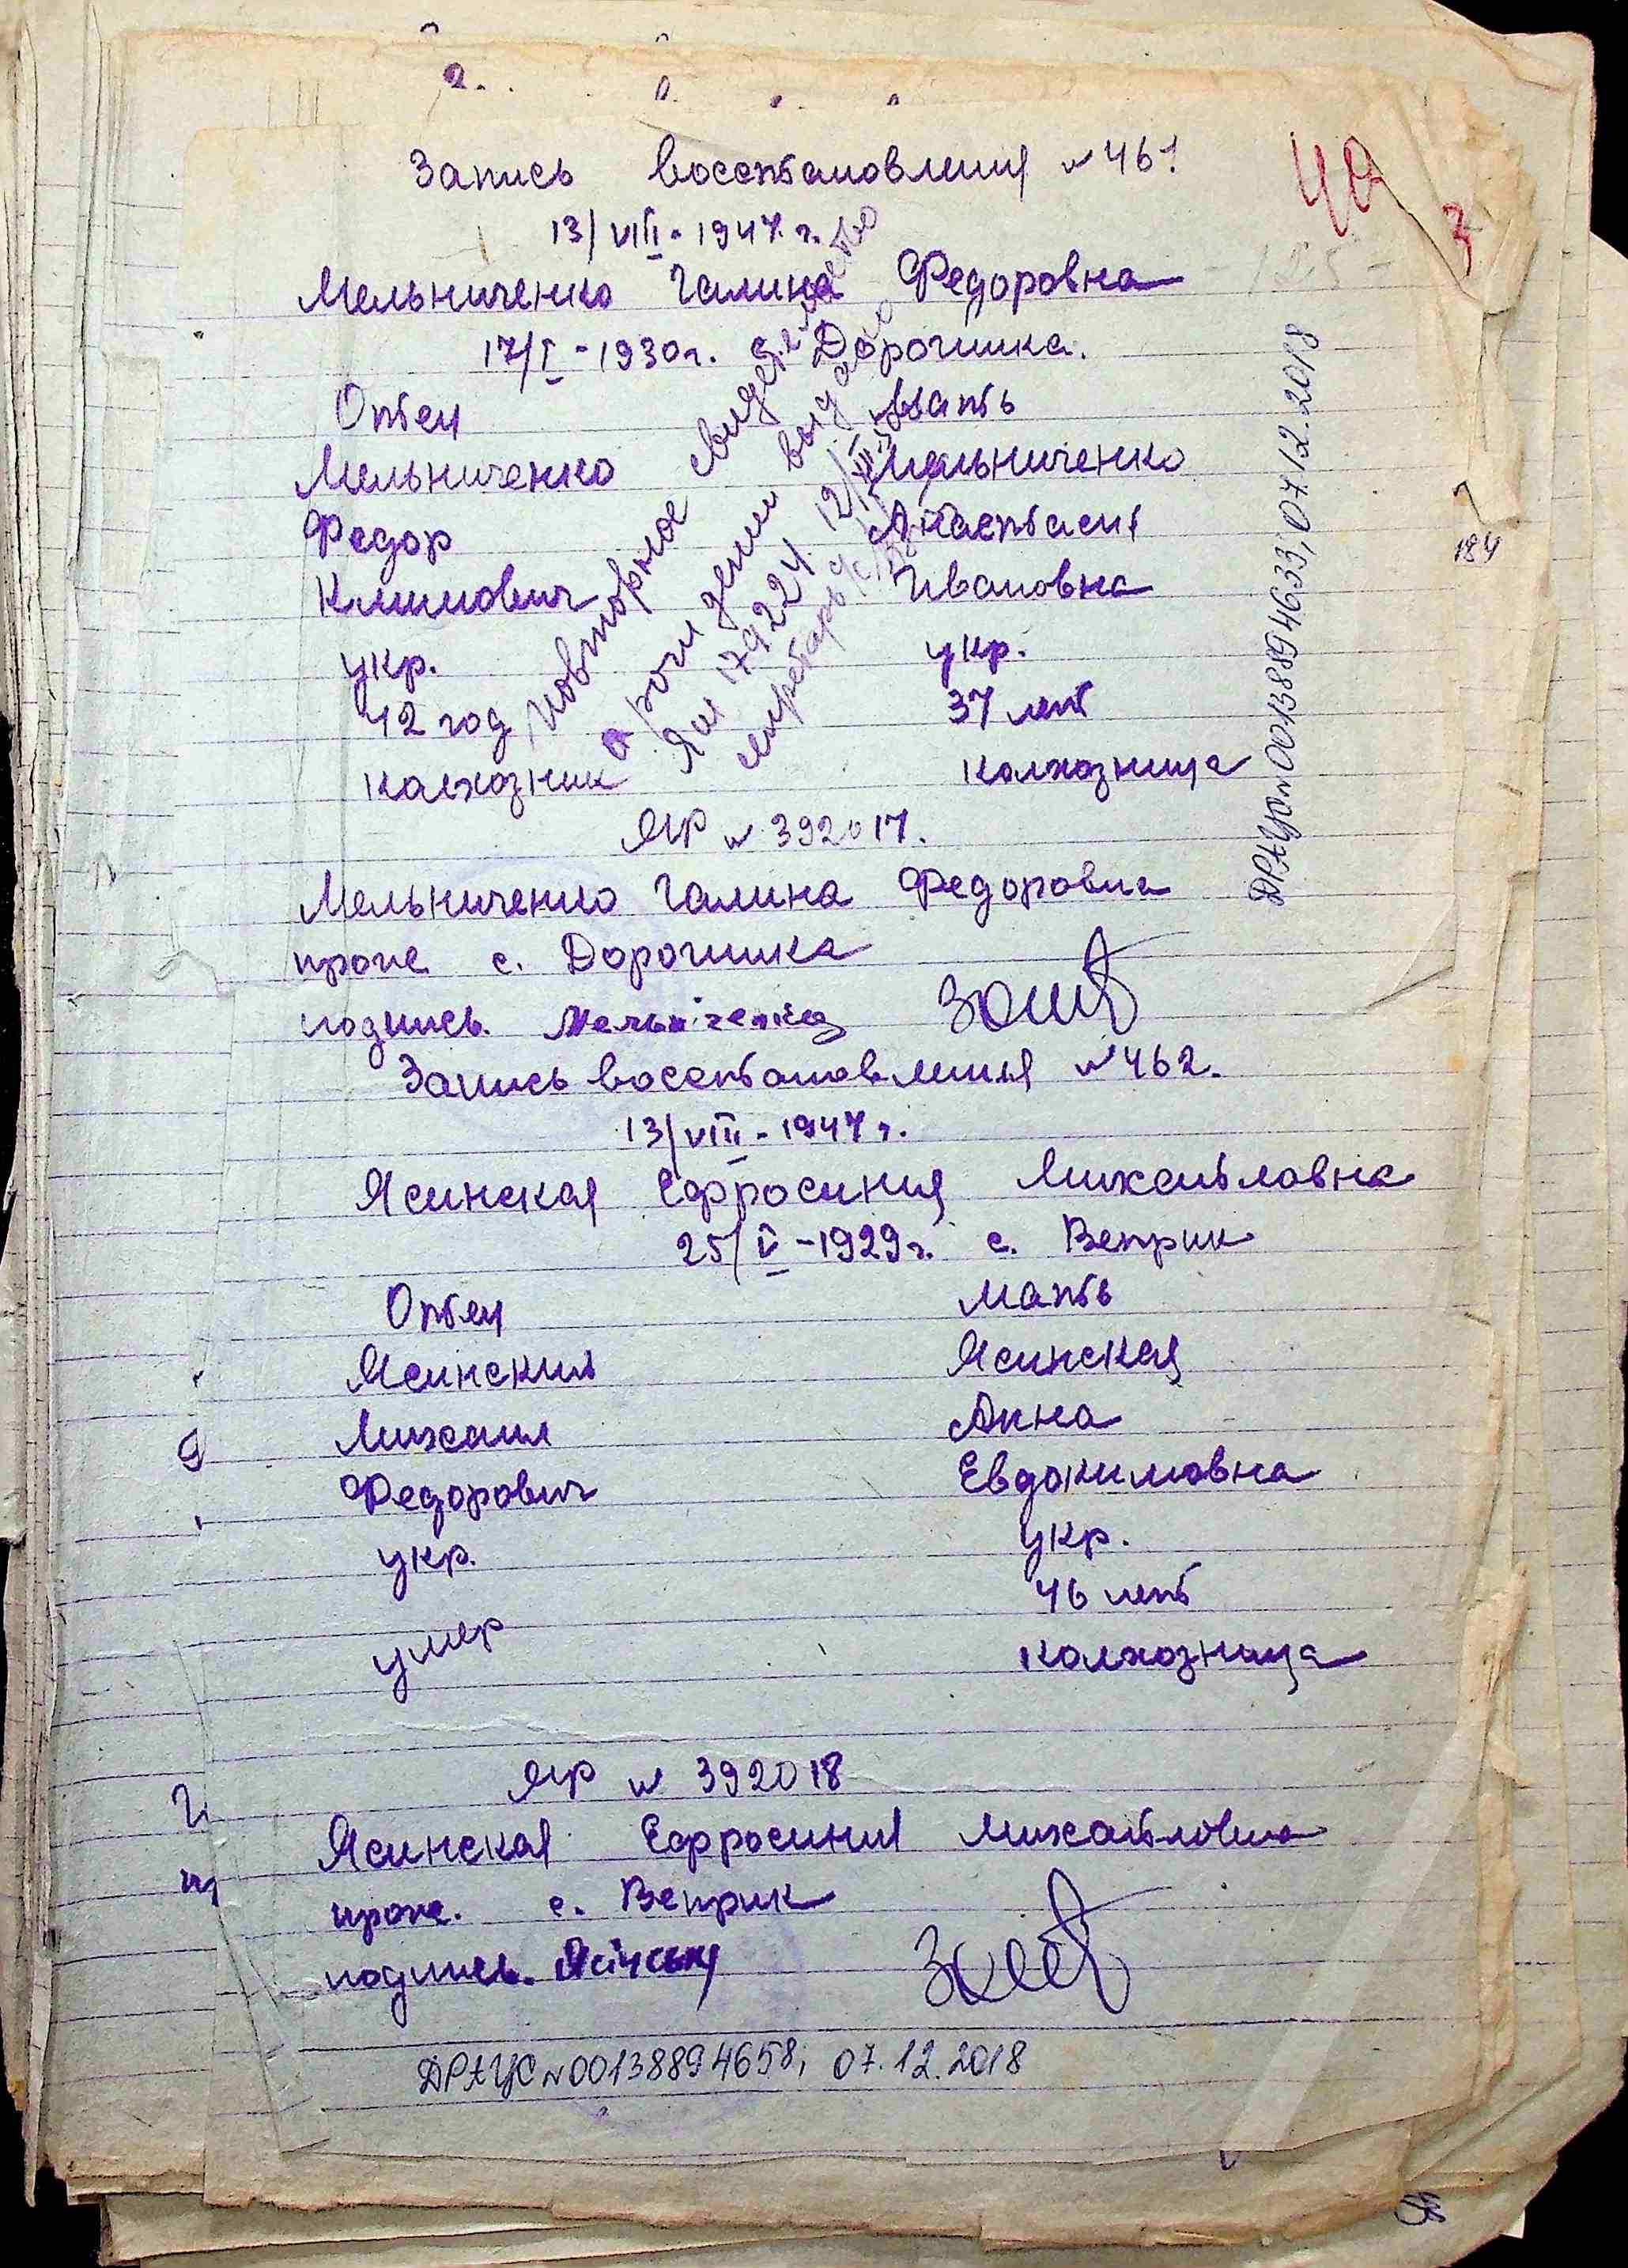 Запись восстановления № 461
13/VIII - 1947 г.
Мельниченко Галина Федоровна
17/I - 1930 г. с. Дорогинка.
Отец Мать
Мельниченко Мельниченко
Федор Анастасия
Климович Ивановна
укр. укр.
42 год 37 лет
колхозник колхозница
Повторное свидетельство
о рождении выдано
179224 12/
ЯГР № 392017.
Мельниченко Галина Федоровна
прож. с. Дорогинка
подпись. Мельніченко
Запись восстановления № 462.
13/VIII - 1947 г.
Ясинская Ефросиния Михайловна
25/V - 1929 г. с. Веприк
Отец Мать
Ясинский Ясинская
Михаил Анна
Федорович Евдокимовна
укр. укр.
умер 46 лет
колхозница
ЯГР № 392018
Ясинская Ефросиния Михайловна
прож. с. Веприк
подпись.
ДРАЦС №00138894658, 07.12.2018
ДРАЦС №00138894633, 07.12.2018
184